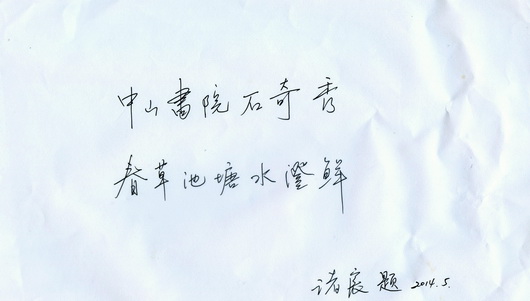 中山書院石奇秀
春草池塘水澄鮮
诸宸题 2014.5.